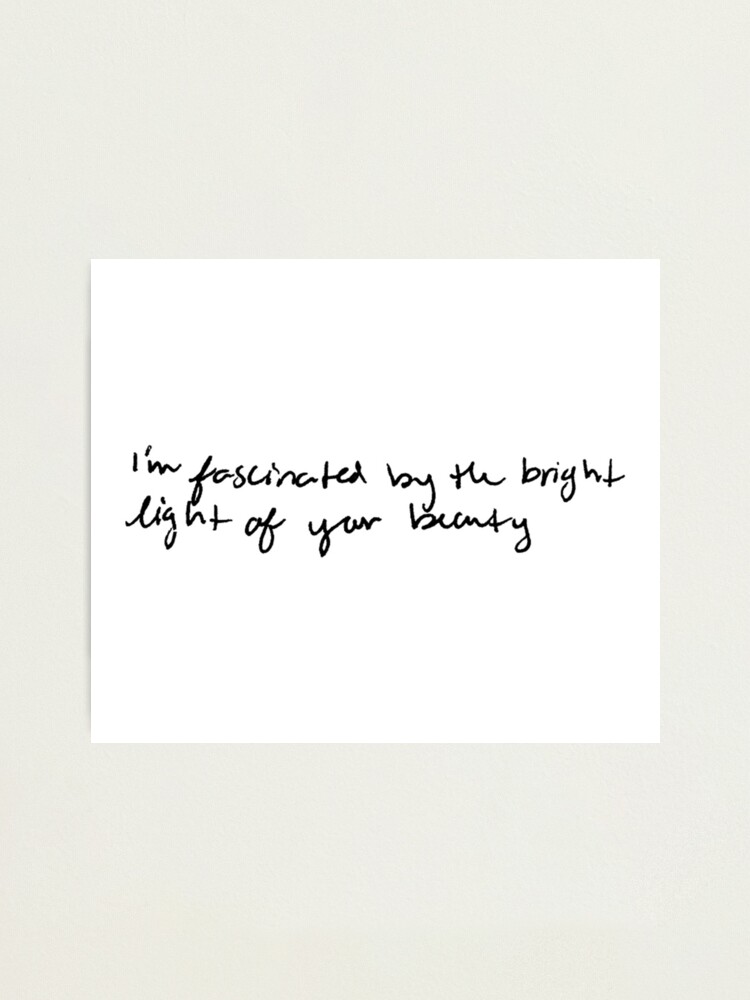 I'm fascinated by the bright
light of your beauty